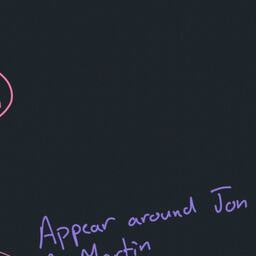 Appear around Jon
Martin